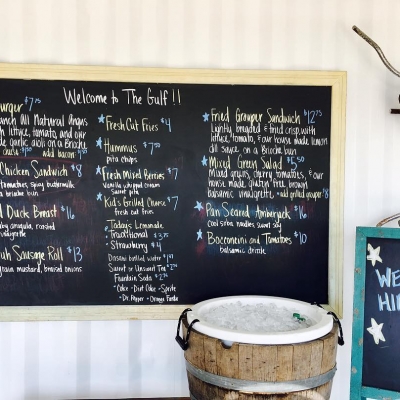 Welcome to The Gulf!!
urger $7.75
anch All Natural Angus
th lettuce, tomato, and our
de garlic aioli on a Brioche
add bacon
Chicken Sandwich $8
tomatoes, spicy buttermilk
a brioche bun
d Duck Breast $16
by arugula, roasted
vinaigrette
sh Sausage Roll $13
grain mustard, braised onions
Fresh Cut Fries $4
Hummus $7.50
pita chips
Fresh Mixed Berries $7
Vanilla whipped cream
sweet pita
Kid's Grilled Cheese $7
fresh cut fries
Today's Lemonade
Traditional $3.75
Strawberry $4
Dasani bottled water
Sweet or Unsweet Tea
Fountain Soda
Coke - Diet Coke - Sprite
Dr. Pepper - Orange Fanta
Fried Grouper Sandwich $12.75
Lightly breaded & fried crisp, with
lettuce, tomato, & our house made lemon
dill sauce on a Brioche bun
Mixed Green Salad $5.50
Mixed greens, cherry tomatoes, & our
house made, gluten free, brown
balsamic vinaigrette add grilled grouper $8
Pan Seared Amberjack $16
cool soba noodles, sweet soy
Bocconcini and Tomatoes $10
balsamic drizzle
WE
HI